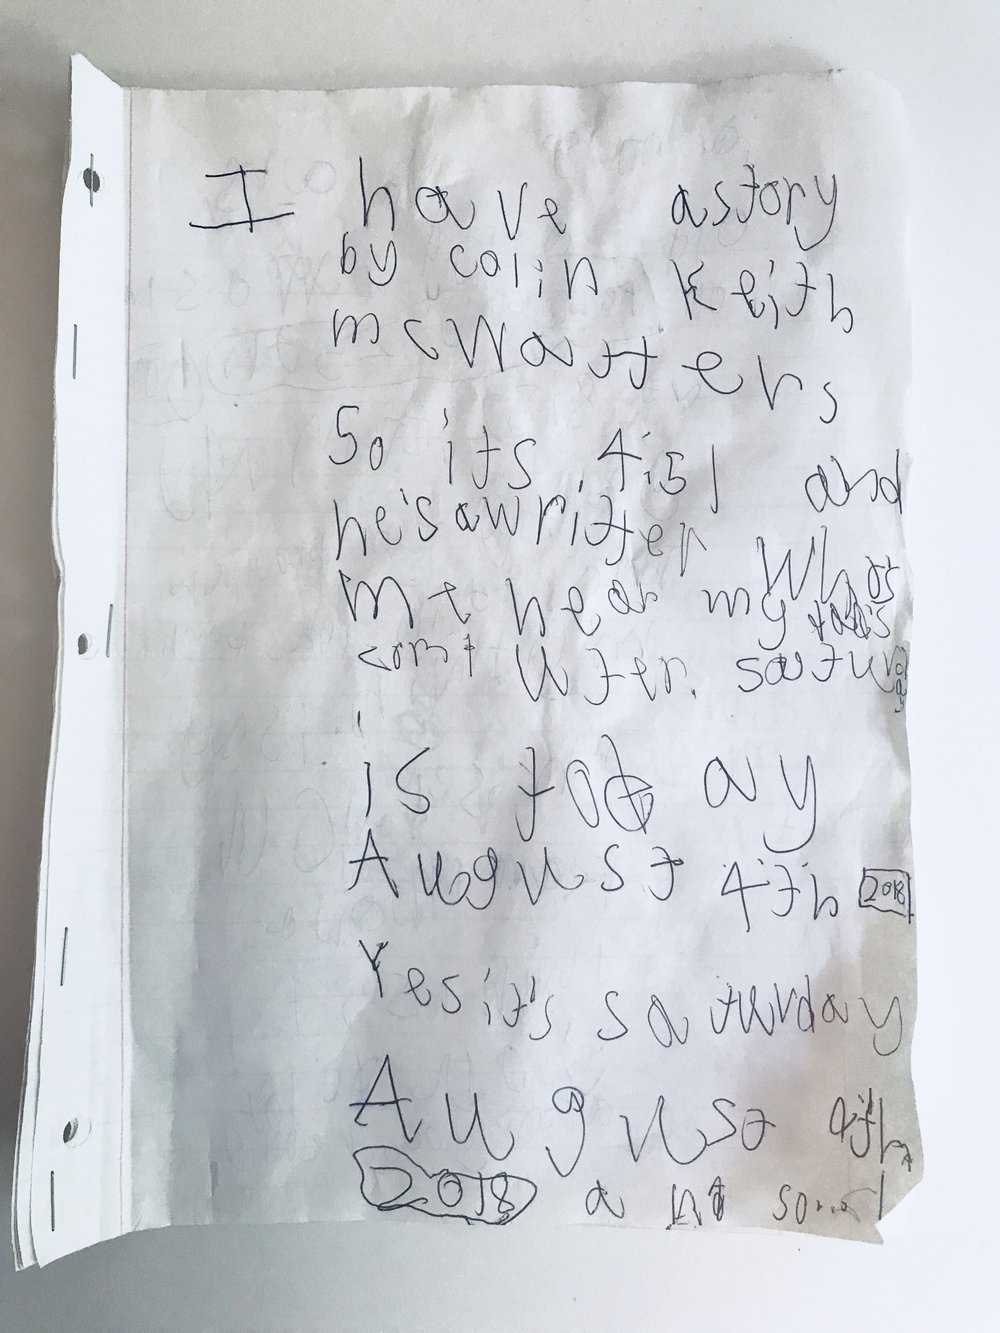 I have a story
by colin Keith
mcWatters
So its 4:51 and
he's a writter
me hear my What's
todas
Uter. saturday
is today
August 4th 2018
Yes it's saturday
August 4th
2018 a